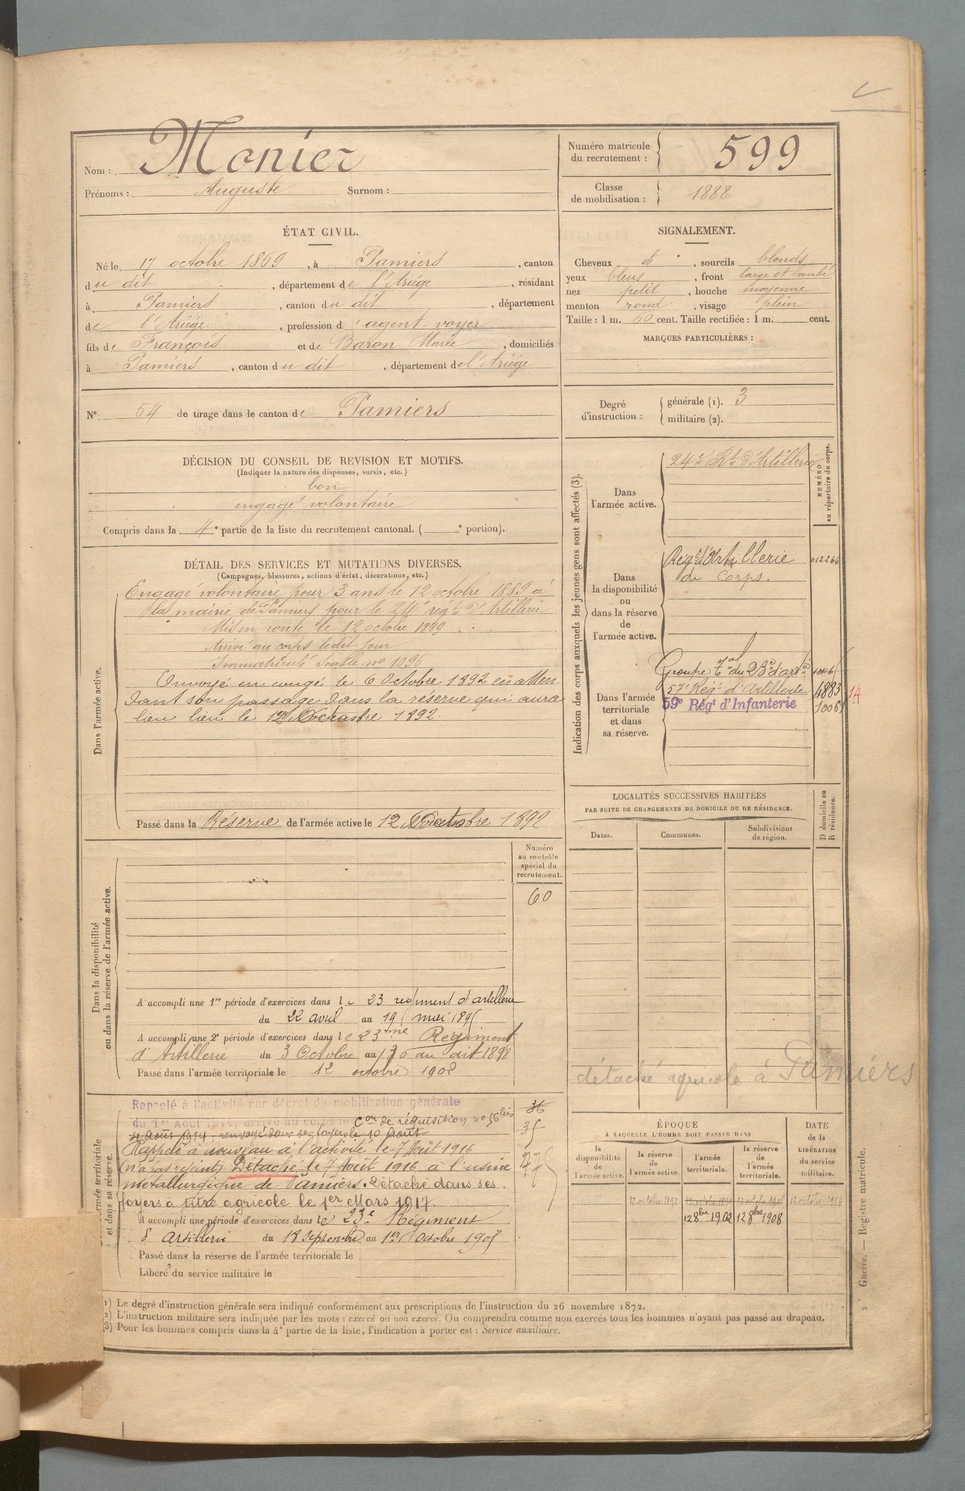 Nom : Monier
Prénoms : Auguste Surnom :
Numéro matricule du recrutement : 599
Classe de mobilisation : 1888
ÉTAT CIVIL.
Né le 17 octobre 1869, à Pamiers, canton
du dit, département de l'Ariège, résidant
à Pamiers, canton du dit, département
de l'Ariège, profession d'agent voyer
fils de François et de Baron Marie, domiciliés
à Pamiers, canton du dit, département de l'Ariège
SIGNALEMENT.
Cheveux et, sourcils blonds
yeux bleus, front large et bombé
nez petit, bouche moyenne
menton rond, visage plein
Taille : 1 m. 60 cent. Taille rectifiée : 1 m. cent.
MARQUES PARTICULIÈRES :
N° 54 de tirage dans le canton de Pamiers
Degré d'instruction : générale (1). 3
militaire (2).
DÉCISION DU CONSEIL DE REVISION ET MOTIFS.
(Indiquer la nature des dispenses, sursis, etc.)
bon
engagé volontaire
Compris dans la 4e partie de la liste du recrutement cantonal. ( e portion).
DÉTAIL DES SERVICES ET MUTATIONS DIVERSES.
(Campagnes, blessures, actions d'éclat, décorations, etc.)
Dans l'armée active.
Engagé volontaire pour 3 ans le 12 octobre 1889 à
la mairie de Pamiers pour le 24e reg.t d'Artillerie
Mis en route le 12 octobre 1889
Arrivé au corps ledit jour
Immatriculé sous le n°
Envoyé en congé le 6 Octobre 1892 en atten
dant son passage dans la réserve qui aura
lieu le 12 Octobre 1892
Passé dans la Réserve de l'armée active le 12 Octobre 1892
Indication des corps auxquels les jeunes gens sont affectés (3).
NUMÉRO au répertoire du corps.
Dans l'armée active.
24e Rt d'Artillerie
Dans la disponibilité ou dans la réserve de l'armée active.
Régt d'Artillerie
de Corps.
Dans l'armée territoriale et dans sa réserve.
Groupe tal du 23e d'art
57e Régt d'Artillerie 4883
59e Régt d'Infanterie
14
LOCALITÉS SUCCESSIVES HABITÉES
PAR SUITE DE CHANGEMENTS DE DOMICILE OU DE RÉSIDENCE.
Dates. Communes. Subdivisions de région. D domicile ou R résidence.
détaché agricole à Pamiers
Dans la disponibilité ou dans la réserve de l'armée active.
Numéro au contrôle spécial du recrutement.
60
A accompli une 1re période d'exercices dans le 23 régiment d'artillerie
du 22 avril au 19 mai 189
A accompli une 2e période d'exercices dans le 23ème Régiment
d'Artillerie du 3 Octobre au 30 au dit 1898
Passé dans l'armée territoriale le 12 octobre 1902
Rappelé à l'activité par décret de mobilisation générale
du 1er Août 1914. Arrivé au corps le Con de réquisition n° 56 bis
4 Août 1914. renvoyé dans ses foyers le 10 Août
Rappelé à nouveau à l'activité le 7 Août 1916
(n'a pas rejoint) Détaché le 7 Août 1916 à l'usine
métallurgique de Pamiers. Détaché dans ses
foyers à titre agricole le 1er Mars 1917.
A accompli une période d'exercices dans le 23e Régiment
d'Artillerie du 18 Septembre au 1er Octobre 190
Passé dans la réserve de l'armée territoriale le
Libéré du service militaire le
armée territoriale et dans sa réserve.
36
35
ÉPOQUE
À LAQUELLE L'HOMME DOIT PASSER DANS
DATE de la LIBÉRATION du service militaire.
la disponibilité de l'armée active. la réserve de l'armée active. l'armée territoriale. la réserve de l'armée territoriale.
12 octobre 1892
12 8bre 1902 12 8bre 1908
(1) Le degré d'instruction générale sera indiqué conformément aux prescriptions de l'instruction du 26 novembre 1872.
(2) L'instruction militaire sera indiquée par les mots : exercé ou non exercé. On comprendra comme non exercés tous les hommes n'ayant pas passé au drapeau.
(3) Pour les hommes compris dans la 4e partie de la liste, l'indication à porter est : Service auxiliaire.
2 Guerre. — Registre matricule.